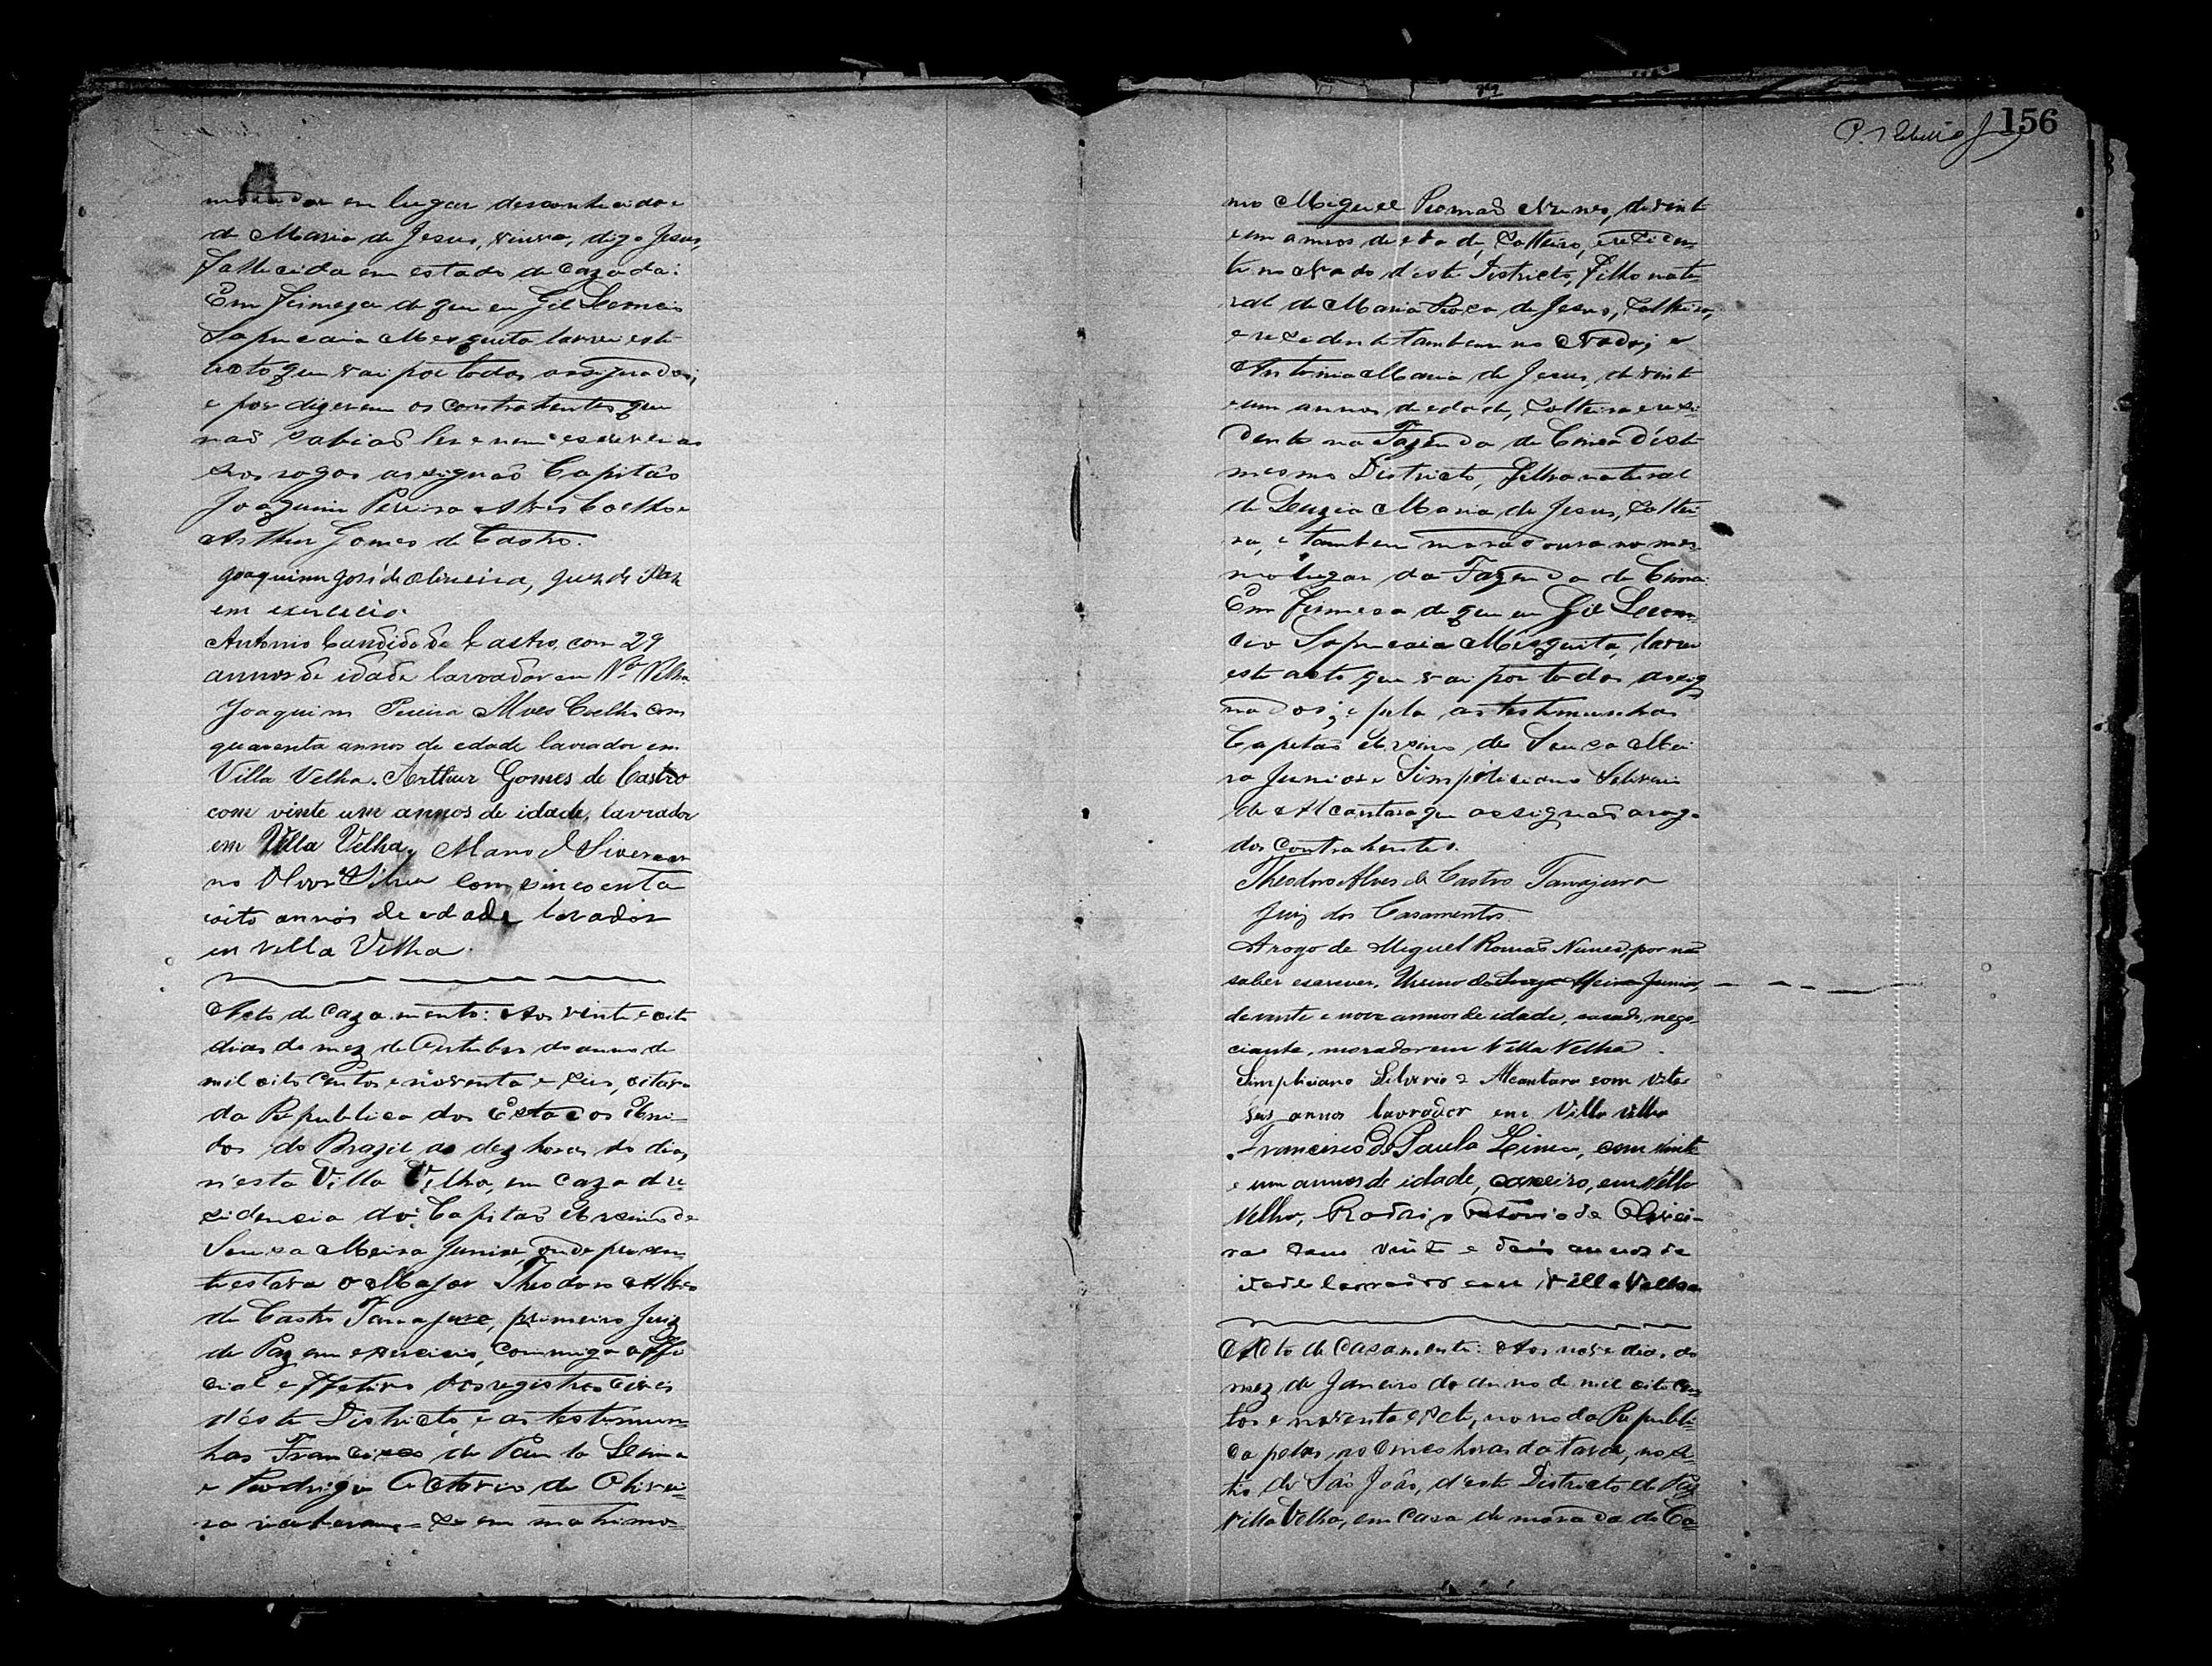 morador em lugar desconhecido e
de Maria de Jesus, viuva, digo Jesus,
fallecida em estado de cazada:
Em firmeza de que eu Gil Leoncio
Sapucaia Mesquita lavrei este
acto que vai por todos assignados;
e por dizerem os contrahentes que
não sabião ler e nem escrever as
seos rogos assignão Capitão
Joaquim Pereira Alves Coelho e
Arthur Gomes de Castro.
Joaquim José de Oliveira, Juiz de Paz
em exercicio.
Antonio Candido de Castro, com 29
annos de idade lavrador em Vª Velha
Joaquim Pereira Alves Coelho com
quarenta annos de edade lavrador em
Villa Velha. Arthur Gomes de Castro
com vinte um annos de idade, lavrador
em Villa Velha, Manoel
no Silva com sincoenta
oito annos de edade lavador
em villa Velha.
Acto de cazamento: Aos vinte e oito
dias do mez de Outubro do anno de
mil oito centos e noventa e seis, oitavo
da Republica dos Estados Uni-
dos do Brazil, as dez horas do dia,
n'esta Villa Velha, em caza de re
sidencia do Capitão Ursino de
Sousa Meira Junior, onde presen
te estava o Major Theodoro Alves
de Castro Tanajura, primeiro Juiz
de Paz em exercicio, commigo offi
cial e ffetivo dos registros civis
d'este Districto, e as testemun=
has Francisco de Paula Lima
e Rodrigo Octavio de Olivei=
ra receberam-se em matrimo=
156
nio Miguel Romaõ Nunes, de vinte
e um annos de edade, solteiro, e residen
te no Nado d'este Districto, filho natu=
ral de Maria Roza de Jesus, solteira,
e residente tambem no Nado; e
Antonia Maria de Jesus, de vinte
e um annos de edade, solteira e resi=
dente na Fazenda de Cima d'este
mesmo Districto, filha natural
de Luzia Maria de Jesus, soltei
ra, e tambem moradoura no mes
mo lugar da Fazenda de Cima.
Em firmesa de que eu Gil Leon=
cio Sapucaia Mesquita, lavrei
este acto que vai por todos assig
nados; e pela as testemunhas
Capitão Ursino de Sousa Mei
ra Junior e Simpliciano Silverio
de Alcantara que assignão a rogo
dos contrahentes.
Theodoro Alves de Castro Tanajura
Juiz dos Casamentos
A rogo de Miguel Romaõ Nunes, por não
saber escrever, Ursino de Souza Meira Junior,
de vinte e nove annos de idade, casado, nego-
ciante, morador em Villa Velha.
Simpliciano Silverio d Alcantara com vite
seis annos lavrador em Villa velha
Francisco de Paula Lima, com vinte
e um annos de idade, caxeiro, em Villa
Velha, Rodrigo Octavio de Olivei-
ra com vinte e dois annos de
idade lavrador em Villa Velha
Acto de casamento: Aos nove dias do
mez de Janeiro do anno de mil oito cen
tos e noventa e sete, nono da Republi=
ca pelas as cinco horas da tarde, no si=
tio de São João, d'este Districto de Paz
Villa Velha, em casa de morada do Ca=